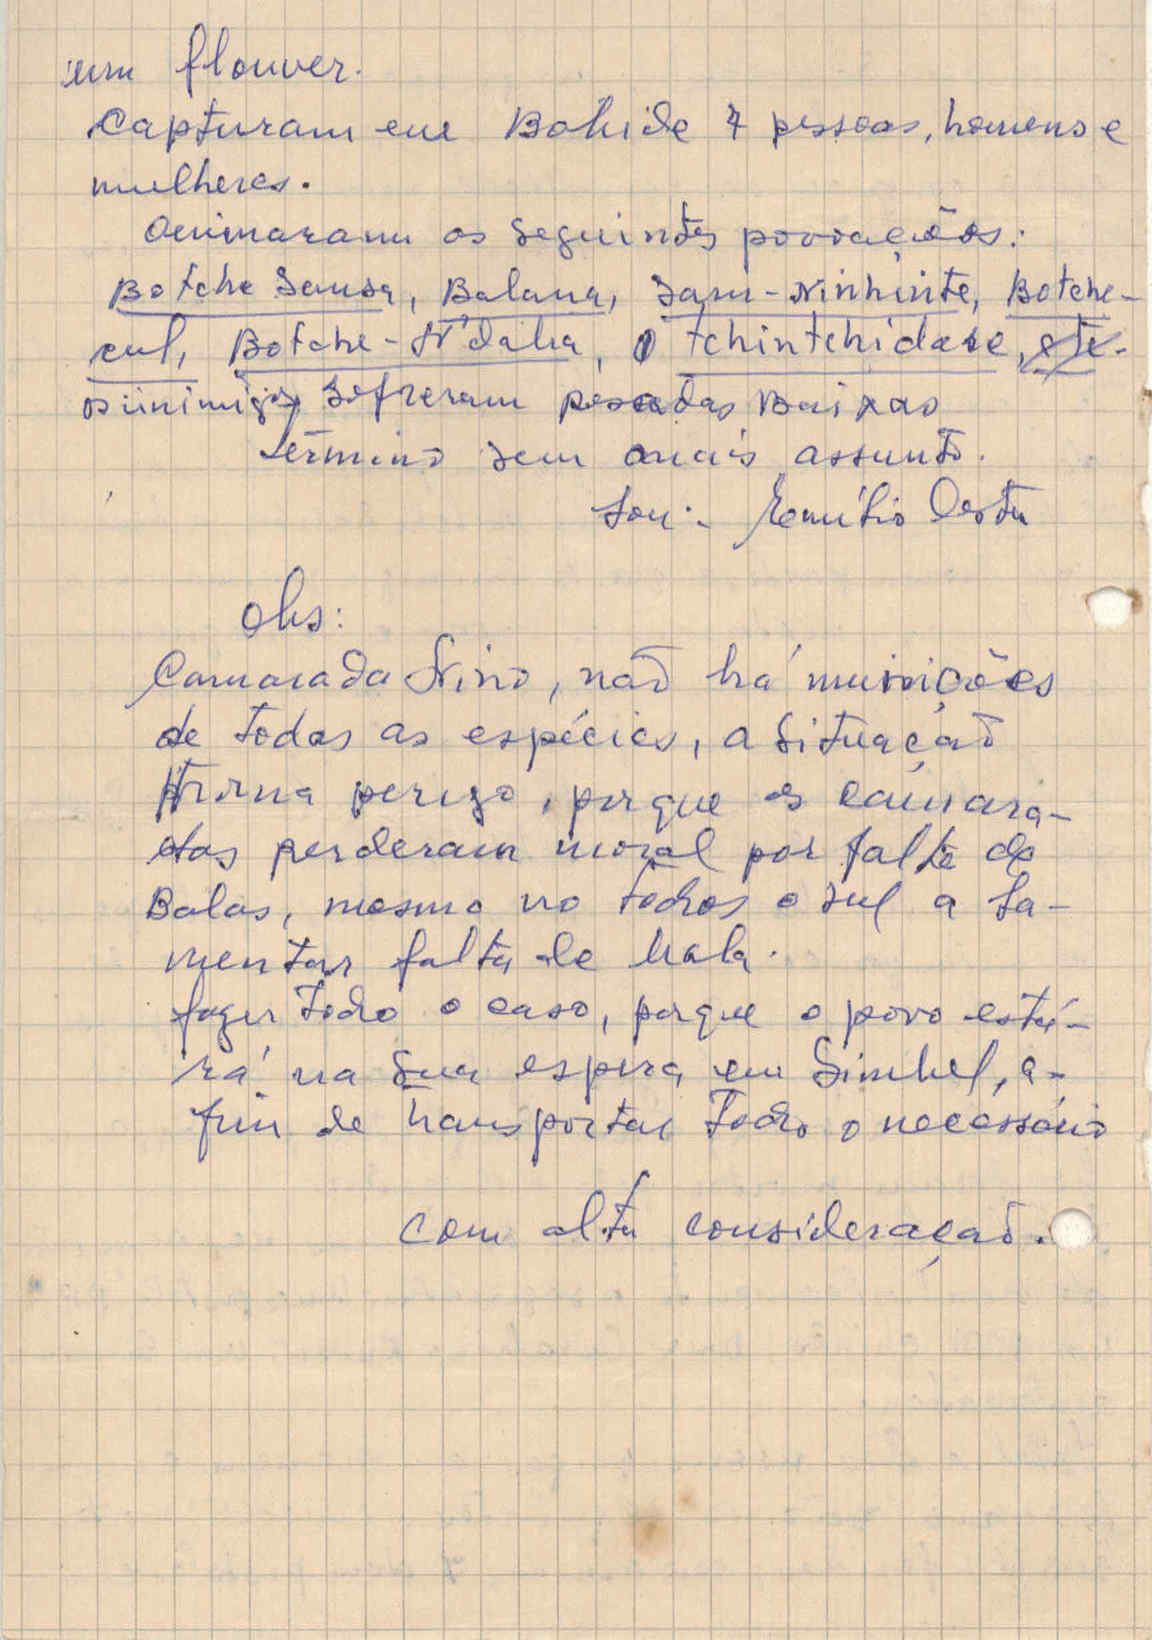 um flouver.
Capturam em Bohide 7 pessoas, homens e
mulheres.
Queimaram as seguintes povoações:
Botche Sansa, Balana, Sam-Ninhinte, Botche-
cul, Botche-N'dalia, o tchintchidaze,
os inimigos sofreram pesadas Baixas
término sem mais assunto.
Sou:- Emílio Costa
Obs:
Camarada Nino, não há munições
de todas as espécies, a situação
torna perigo, porque os camara-
das perderam moral por falta de
Balas, mesmo no todros o sul a la-
mentar falta de bala.
fazer todro o caso, porque o povo esta-
rá na sua espera em Simbel, a-
fim de transportar Todro o necessário
com alta consideração.